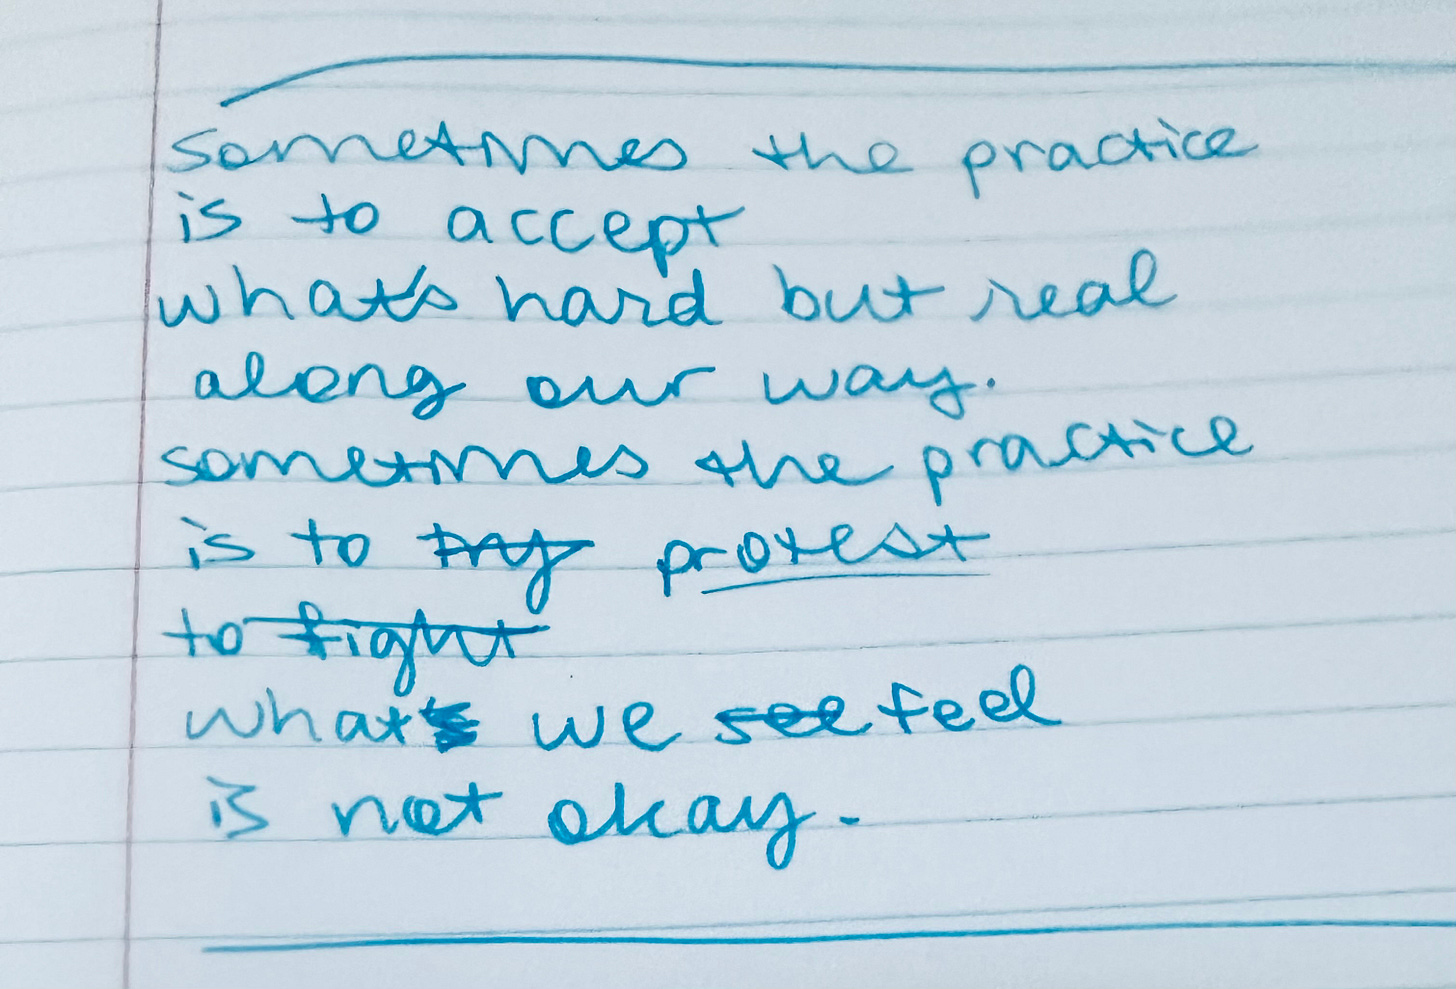 sometimes the practice
is to accept
what's hard but real
along our way.
sometimes the practice
is to try protest
to fight
what's we see feel
is not okay.